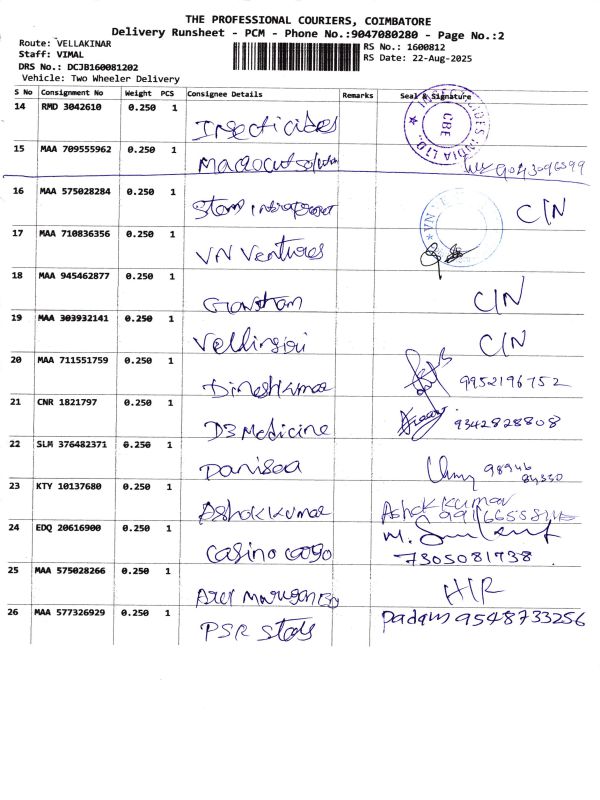 THE PROFESSIONAL COURIERS, COIMBATORE
Delivery Runsheet - PCM - Phone No.:9047080280 - Page No.:2
Route: VELLAKINAR
Staff: VIMAL
DRS No.: DCJB160081202
Vehicle: Two Wheeler Delivery
RS No.: 1600812
RS Date: 22-Aug-2025
S No Consignment No Weight PCS Consignee Details Remarks Seal & Signature
14 RMD 3042610 0.250 1
Insecticides
INSECTICIDES INDIA LTD. CBE
15 MAA 709555962 0.250 1
9043096599
16 MAA 575028284 0.250 1
C/N
17 MAA 710836356 0.250 1
VN Ventures
VN
18 MAA 945462877 0.250 1
Gowtham C/N
19 MAA 303932141 0.250 1
Vellingiri C/N
20 MAA 711551759 0.250 1
Dineshkumar 9952196752
21 CNR 1821797 0.250 1
D3 Medicine 9342828808
22 SLM 376482371 0.250 1
Danisea 98946
84330
23 KTY 10137680 0.250 1
Ashokkumar Ashok kumar
24 EDQ 20616900 0.250 1
Casino cargo 7305081738
25 MAA 575028266 0.250 1
Arul Murugan H/R
26 MAA 577326929 0.250 1
PSR Stays Padam 9548733256